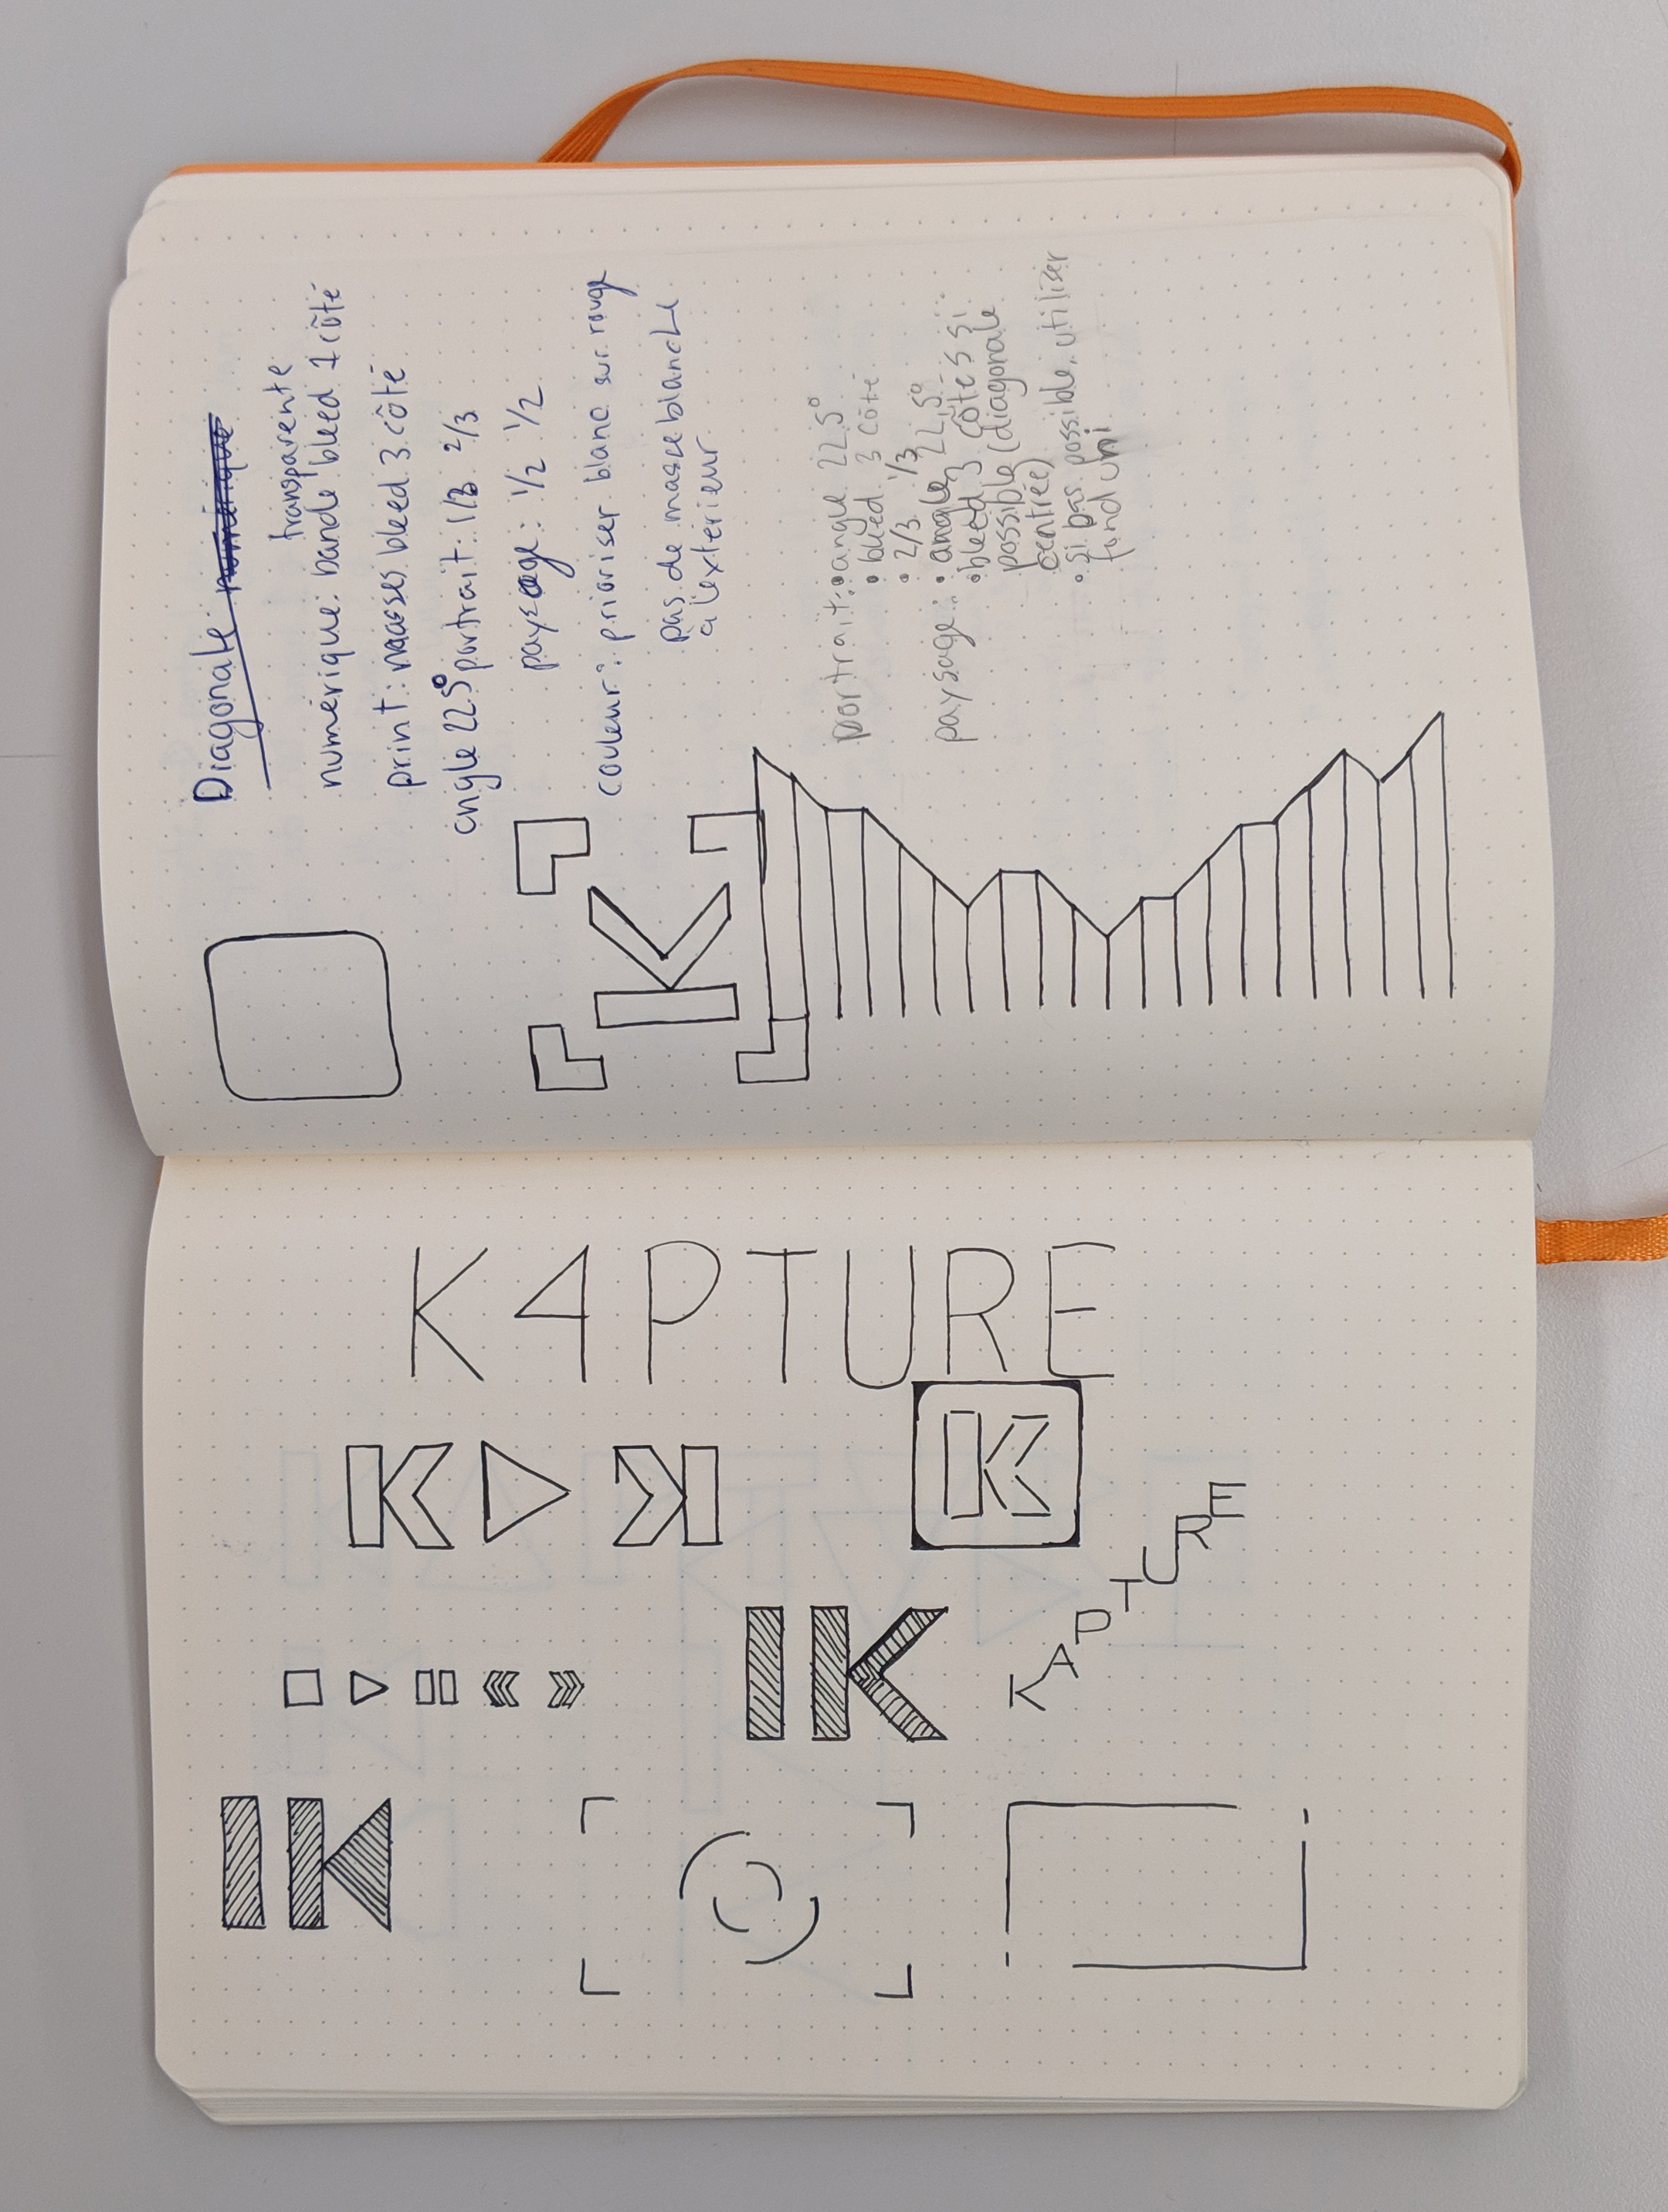 Diagonale numérique
transparente
numérique: bande bleed 1 côté
print: masses bleed 3 côté
angle 22.5° portrait: 1/3 2/3
paysage: 1/2 1/2
couleur: prioriser blanc sur rouge
pas de masse blanche
à l'extérieur
portrait: • angle 22.5°
• bleed 3 côté
• 2/3 1/3
paysage: • angle 22,5°
• bleed 3 côtés si
possible (diagonale
centrée)
• si pas possible, utiliser
fond uni
K
K4PTURE
K K
K
IK
KAPTURE
IK